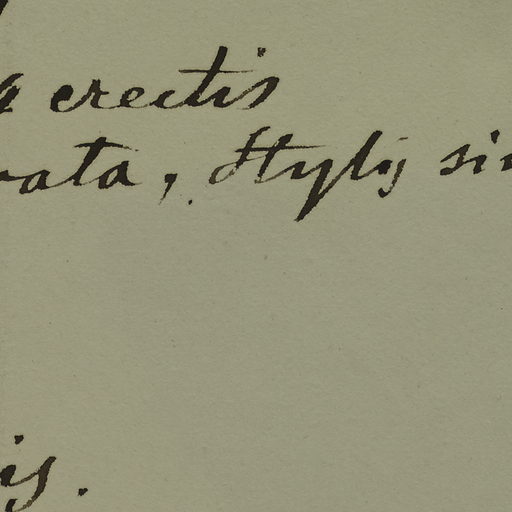 erectis
vata, Stylis
is.